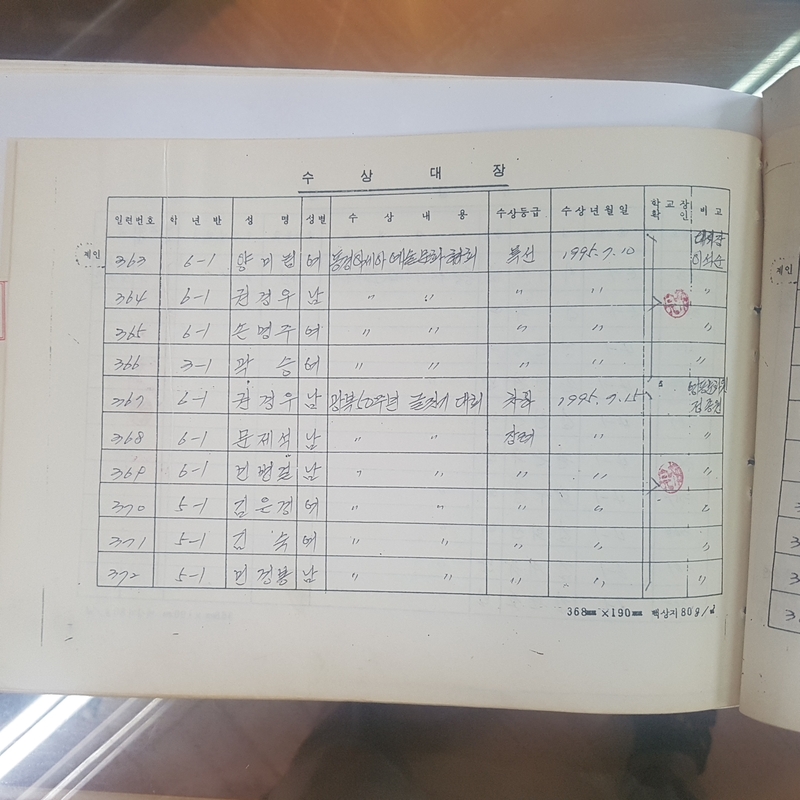 수 상 대 장
일련번호 학 년 반 성 명 성별 수 상 내 용 수상등급 수상년월일 학교장 확인 비고
계인 363 6-1 양미립 여 1995.7.10
364 6-1 권경우 남 〃 〃 〃 〃 〃
365 6-1 손명주 여 〃 〃 〃 〃 〃
366 3-1 곽 승 여 〃 〃 〃 〃 〃
367 6-1 권경우 남 광복50주년 글짓기 대회 차하 1995.7.15
368 6-1 문제석 남 〃 〃 장려 〃 〃
369 6-1 남 〃 〃 〃 〃 〃
370 5-1 김은경 여 〃 〃 〃 〃 〃
371 5-1 김 숙 여 〃 〃 〃 〃 〃
372 5-1 남 〃 〃 〃 〃 〃
368㎜×190㎜ 백상지80g/㎡